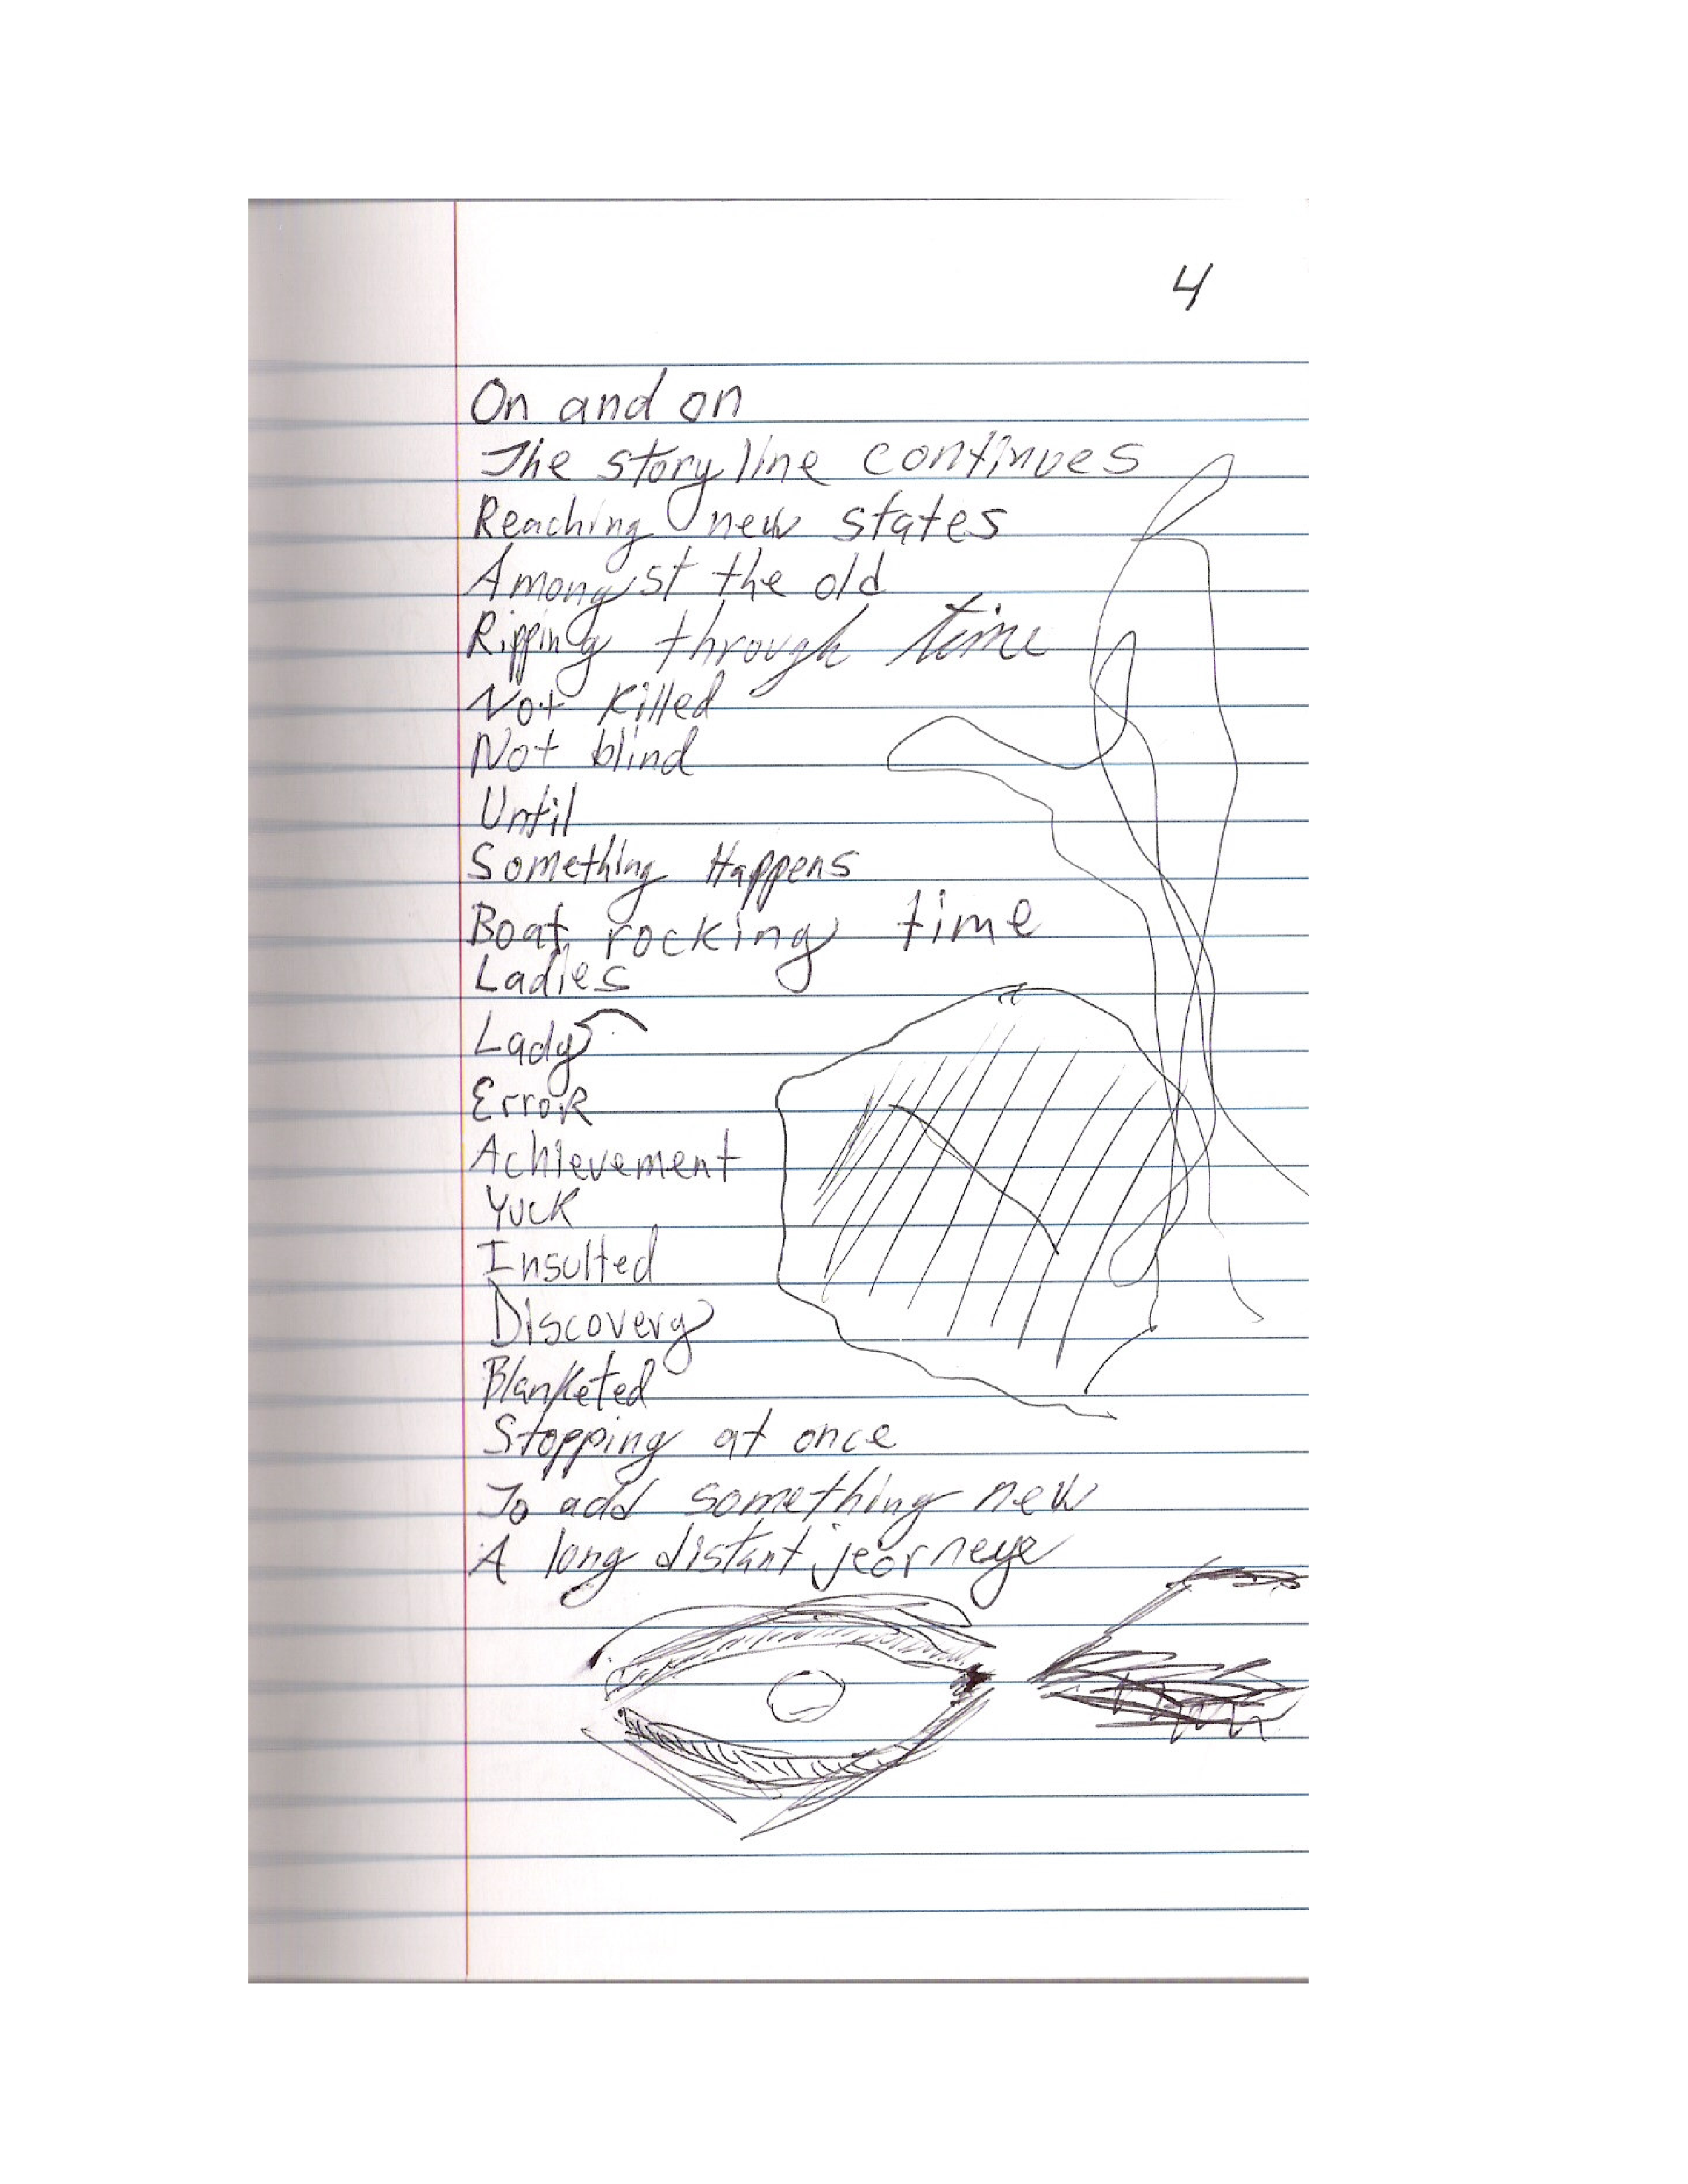 4
On and on
The story line continues
Reaching new states
Amongst the old
Ripping through time
Not killed
Not blind
Until
Something Happens
Boat rocking time
Ladies
Lady
Error
Achievement
Yuck
Insulted
Discovery
Blanketed
Stopping at once
To add something new
A long distant jeorneye